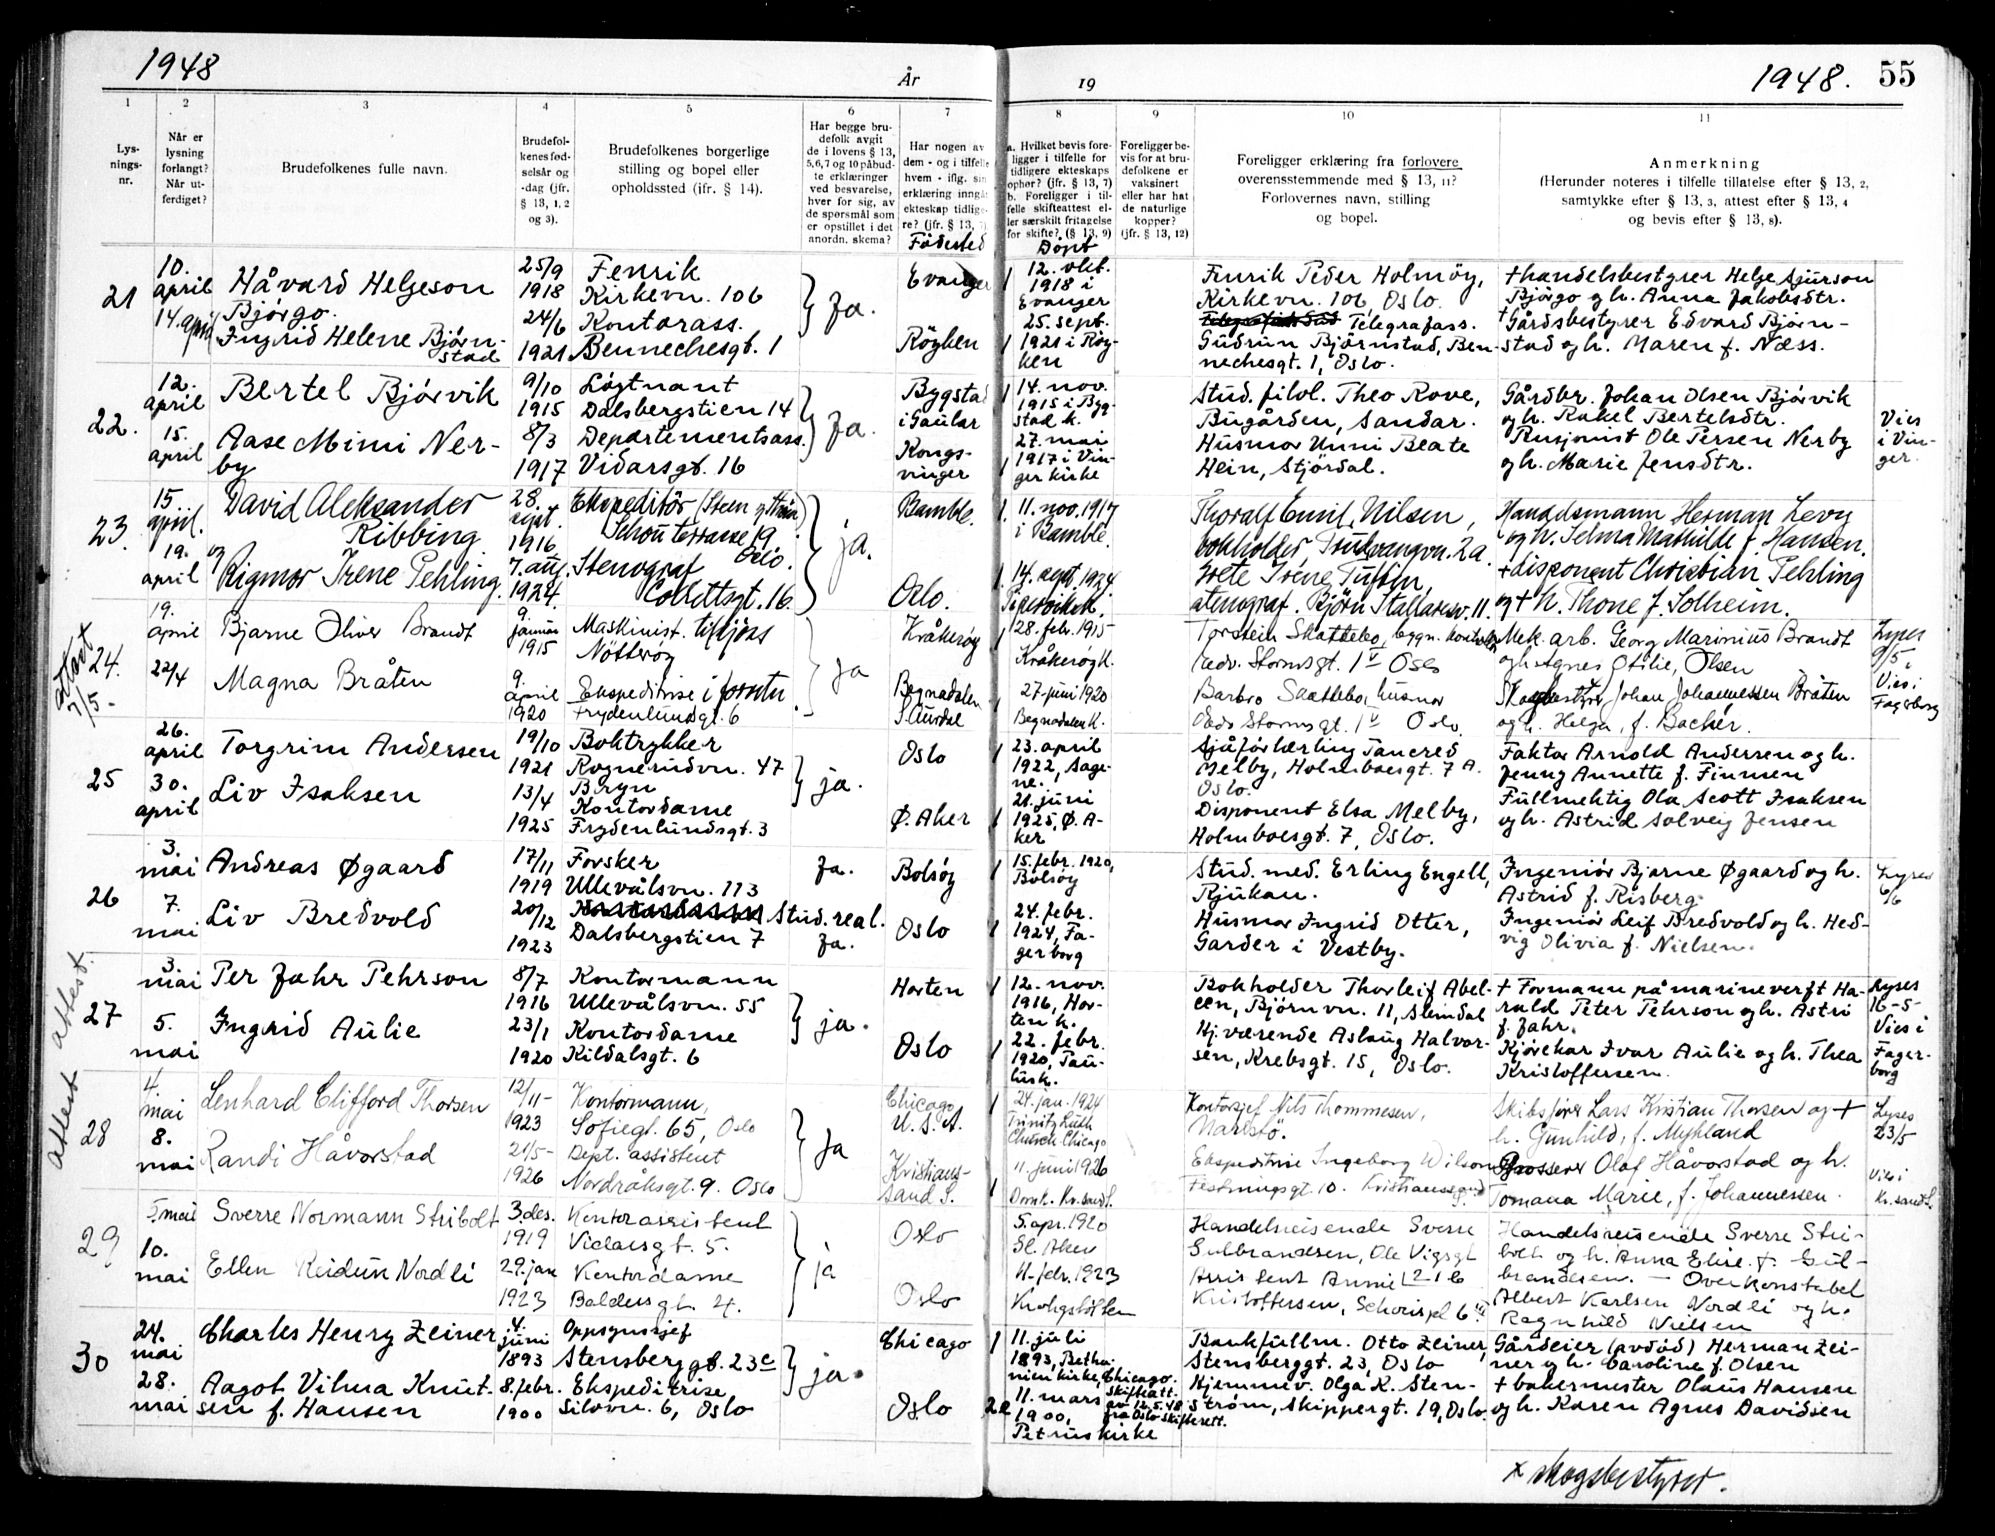 1948
År
19
1948.
55
1
2
3
4
5
6
7
8
9
10
11
Lys-
nings-
nr.
Når er
lysning
forlangt?
Når ut-
ferdiget?
Brudefolkenes fulle navn.
Brudefol-
kenes fød-
selsår og
-dag (jfr.
§ 13, 1, 2
og 3).
Brudefolkenes borgerlige
stilling og bopel eller
opholdssted (ifr. § 14).
Har begge bru-
defolk avgit
de i lovens § 13,
5,6,7 og 10 påbud-
te erklæringer
ved besvarelse,
hver for sig, av
de spørsmål som
er opstillet i det
anordn. skema?
Har nogen av
dem - og i tilfelle
hvem - iflg. sin
erklæring inngått
ekteskap tidlige-
re? (jfr. § 13, 7)
Fødested
a. Hvilket bevis fore-
ligger i tilfelle for
tidligere ekteskaps
ophør? (jfr. § 13, 7)
b. Foreligger i til-
felle skifteattest el-
ler særskilt fritagelse
for skifte? (§ 13, 9)
Døpt
Foreligger be-
vis for at bru-
defolkene er
vaksinert
eller har hat
de naturlige
kopper?
(jfr. § 13, 12)
Foreligger erklæring fra forlovere
overensstemmende med § 13, 11?
Forlovernes navn, stilling
og bopel.
Anmerkning
(Herunder noteres i tilfelle tillatelse efter § 13, 2,
samtykke efter § 13, 3, attest efter § 13, 4
og bevis efter § 13, 8).
21
10.
april
14. april
Håvard Helgeson
Bjørgo.
Ingrid Helene Bjørn-
stad
25/9
1918
24/6
1921
Fenrik
Kirkevn. 106
Kontorass.
Bennechesgt. 1
Ja.
Evanger
Røyken
12. okt.
1918 i
Evanger
25. sept.
1921 i Røy-
ken
Fenrik Peder Holmøy,
Kirkevn. 106, Oslo.
Telegrafass.
Gudrun Bjørnstad, Ben-
nechesgt. 1, Oslo.
+ handelsbestyrer Helge Sjurson
Bjørgo og h. Anna Jakobsdtr.
+ Gårdsbestyrer Edvard Bjørn-
stad og h. Maren f. Næss.
22.
12.
april
15.
april
Bertel Bjørvik
Aase Mimi Ner-
by
9/10
1915
8/3
1917
Løytnant
Dalsbergstien 14
Departementsass.
Vidarsgt. 16
Ja.
Bygstad
i Gaular
Kongs-
vinger
14. nov.
1915 i Byg-
stad k.
27. mai
1917 i Vin-
ger kirke
Stud. filol. Theo Rove,
Bugården, Sandar.
Husmor Unni Beate
Hein, Stjørdal.
Gårdbr. Johan Olsen Bjørvik
og h. Rakel Bertelsdtr.
Pensjonist Ole Persen Nerby
og h. Marie Jensdtr.
Vies
i Vin-
ger.
23.
15
april.
19.
april
David Aleksander
Ribbing
og
Rigmor Irene Pehling.
28.
sept.
1916
7. aug.
1924.
Ekspeditør
Schouterrasse 19
Oslo.
Stenograf
Collettsgt. 16.
ja.
Bamble.
Oslo.
11. nov. 1917
i Bamble.
14. sept. 1924.
Piperviken.
Thoralf Emil Nilsen,
bokholder, 2a.
Grete Irene
stenograf. Bjørn Stallaresv. 11.
Handelsmann Herman Levy
og h. Selma Mathilde f. Hansen.
+ disponent Christian Pehling
og + h. Thone f. Solheim.
attest
7/5 -
24.
19.
april
22/4
Bjarne Oliver Brandt
Magna Bråten
9.
januar
1915
9.
april
1920
Maskinist. tilsjøss
Nøtterøy
Ekspeditrise i forretn.
Frydenlundsgt. 6
Ja
Kråkerøy
Begnadalen
S. Aurdal
28. febr. 1915
Kråkerøy k.
27. juni 1920
Begnadalen k.
Torstein Skattebo, bygn. kontrollør
Edv. Stormsgt. 1 V Oslo
Barbro Skattebo, husmor
Edv. Stormsgt. 1 V Oslo.
Mek. arb. Georg Marinius Brandt
og h. Agnes Otilie, Olsen
Johan Johannessen Bråten
og h. Helga, f. Bacher.
Lyses
9/5,
Vies i
Fagerborg
25
26.
april
30.
april
Torgrim Andersen
Liv Isaksen
19/10
1921
13/4
1925
Boktrykker
Rognerudvn. 47
Bryn
Kontordame
Frydenlundsgt. 3
ja.
Oslo
Ø. Aker
23. april
1922, Sage-
ne.
21. juni
1925, Ø. A-
ker
Sjåførlærling Tancred
Melby, Holmboesgt. 7 A.
Oslo.
Disponent Elsa Melby,
Holmboesgt. 7, Oslo.
Faktor Arnold Andersen og h.
Jenny Annette f. Finmen
Fullmektig Ola Scott Isaksen
og h. Astrid Solveig Jensen
26
3.
mai
7.
mai
Andreas Øgaard
Liv Bredvold
17/11
1919
20/12
1923
Forsker
Ullevålsvn. 113
Stud. real.
Dalsbergstien 7
Ja.
Ja.
Bolsøy
Oslo
15. febr. 1920,
Bolsøy
24. febr.
1924, Fa-
gerborg
Stud. med. Erling Engell,
Rjukan.
Husmor Ingrid Otter,
Garder i Vestby.
Ingeniør Bjarne Øgaard og h.
Astrid f. Risberg.
Ingeniør Leif Bredvold og h. Hed-
vig Olivia f. Nielsen.
Lyses
6/6
attest
27
3.
mai
5.
mai
Per Jahr Pehrson
Ingrid Aulie
8/7
1916
23/1
1920
Kontormann
Ullevålsvn. 55
Kontordame
Kildalsgt. 6
ja.
Horten
Oslo
12. nov.
1916, Hor-
ten k.
22. febr.
1920, Pau-
lusk.
Bokholder Thorleif Abel-
een, Bjørnvn. 11, Slemdal
Hj. værende Aslaug Halvor-
sen, Krebsgt. 15, Oslo.
+ Formann på marineverft Ha-
rald Peter Pehrson og h. Astri
f. Jahr.
Kjørekar Ivar Aulie og h. Thea
Kristoffersen.
Lyses
16-5-
Vies i
Fager-
borg
attest
28
4.
mai
8.
mai
Lenhard Clifford Thorsen
Randi Håvorstad
12/11-
1923
21/5-
1926
Kontormann,
Sofiegt. 65, Oslo
Dept. assistent
Nordråksgt. 9. Oslo
Ja
Chicago
U. S. A.
Kristians-
sand S.
24. jan. 1924
Trinity Luth
Church Chicago
11. juni 1926
Domk. Kr.sand S.
Kontorsjef Nils Thommesen,
Ekspeditrise Ingeborg Wilson
Festningsgt. 10. Kristianssand S.
Skibsfører Lars Kristian Thorsen og +
h. Gunhild, f. Mykland
Grosserer Olaf Håvorstad og h.
Tomana Marie, f. Johannessen.
Lyses
23/5
Vies i
Kr.sand S.
29
5. mai
10.
mai
Sverre Normann Stribolt
Ellen Reidun Nordli
3. des.
1919
29. jan
1923
Kontorassistent
Vidarsgt. 5.
Kontordame
Baldersgt. 4.
ja
Oslo
Oslo
5. apr. 1920
Gl. Aker
11. febr. 1923
Krohgstøtten
Handelsreisende Sverre
Gulbrandsen, Ole Vigsgt
Assistent Annie 21 b
Kristoffersen, Schweigaardspl 6
Handelsreisende Sverre Stri-
bolt og h. Anna Elise f. Gul-
brandsen. - Overkonstabel
Albert Karlsen Nordli og h.
Ragnhild Nielsen
30
24.
mai
28.
mai
Charles Henry Zeiner
Aagot Vilma Knut-
sen f. Hansen
4.
juni
1893
8. febr.
1900
Oppsynssjef
Stensberggt. 23 c
Ekspeditrise
Silovn. 6, Oslo
ja.
Chicago
Oslo
11. juli
1893, Betha-
nien kirke, Chicago.
11. mars
1900,
Petruskirke
Skifteatt.
av 12.5.48
fra Oslo Skifterett.
Bankfullm. Otto Zeiner,
Stensberggt. 23, Oslo
Hjemmev. Olga K. Sten-
strøm, Skippergt. 19, Oslo.
Gårdeier (avdød) Herman Zei-
ner og h. Caroline f. Olsen
+ bakermester Olaus Hansen
og h. Karen Agnes Davidsen
x skogsbestyrer.